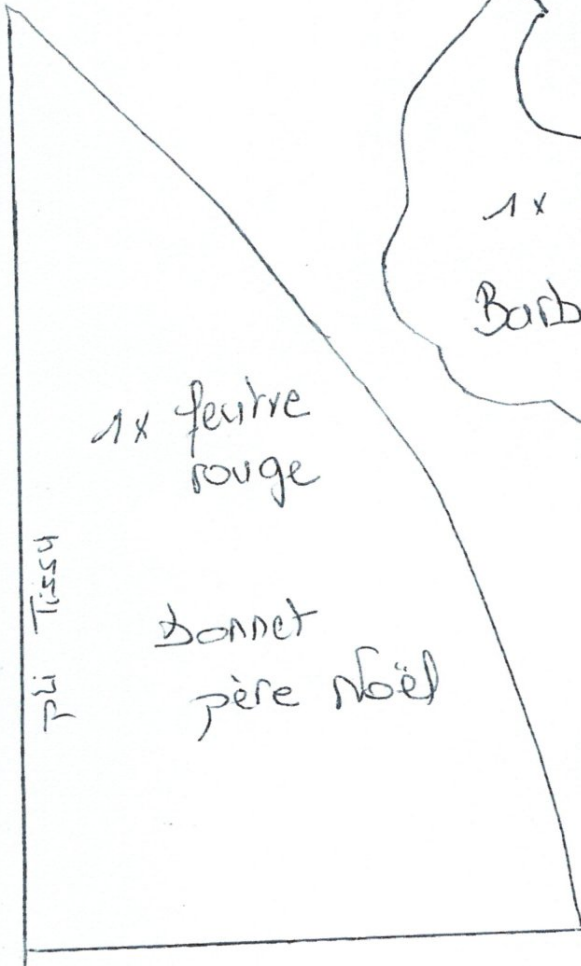 1x
Barb
1x feutre
rouge
pli Tissu
bonnet
père Noël